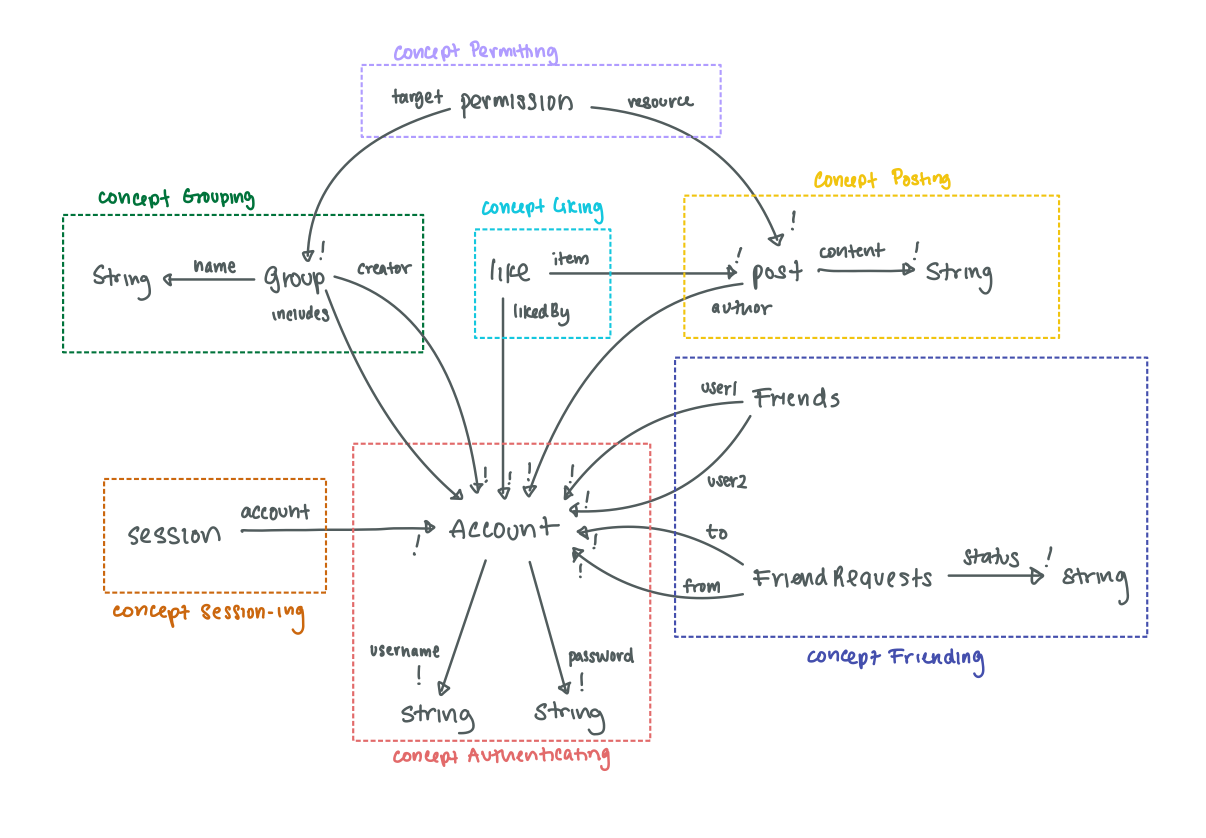 concept Permitting
target permission resource
concept Grouping
String name Group ! creator
includes
concept Liking
like item
likedBy
concept Posting
!
! post content ! String
author
user1 Friends
user2
to
FriendRequests status ! String
from
concept Friending
session account
!
concept Session-ing
! ! ! ! !
Account
!
!
username password
! !
String String
concept Authenticating